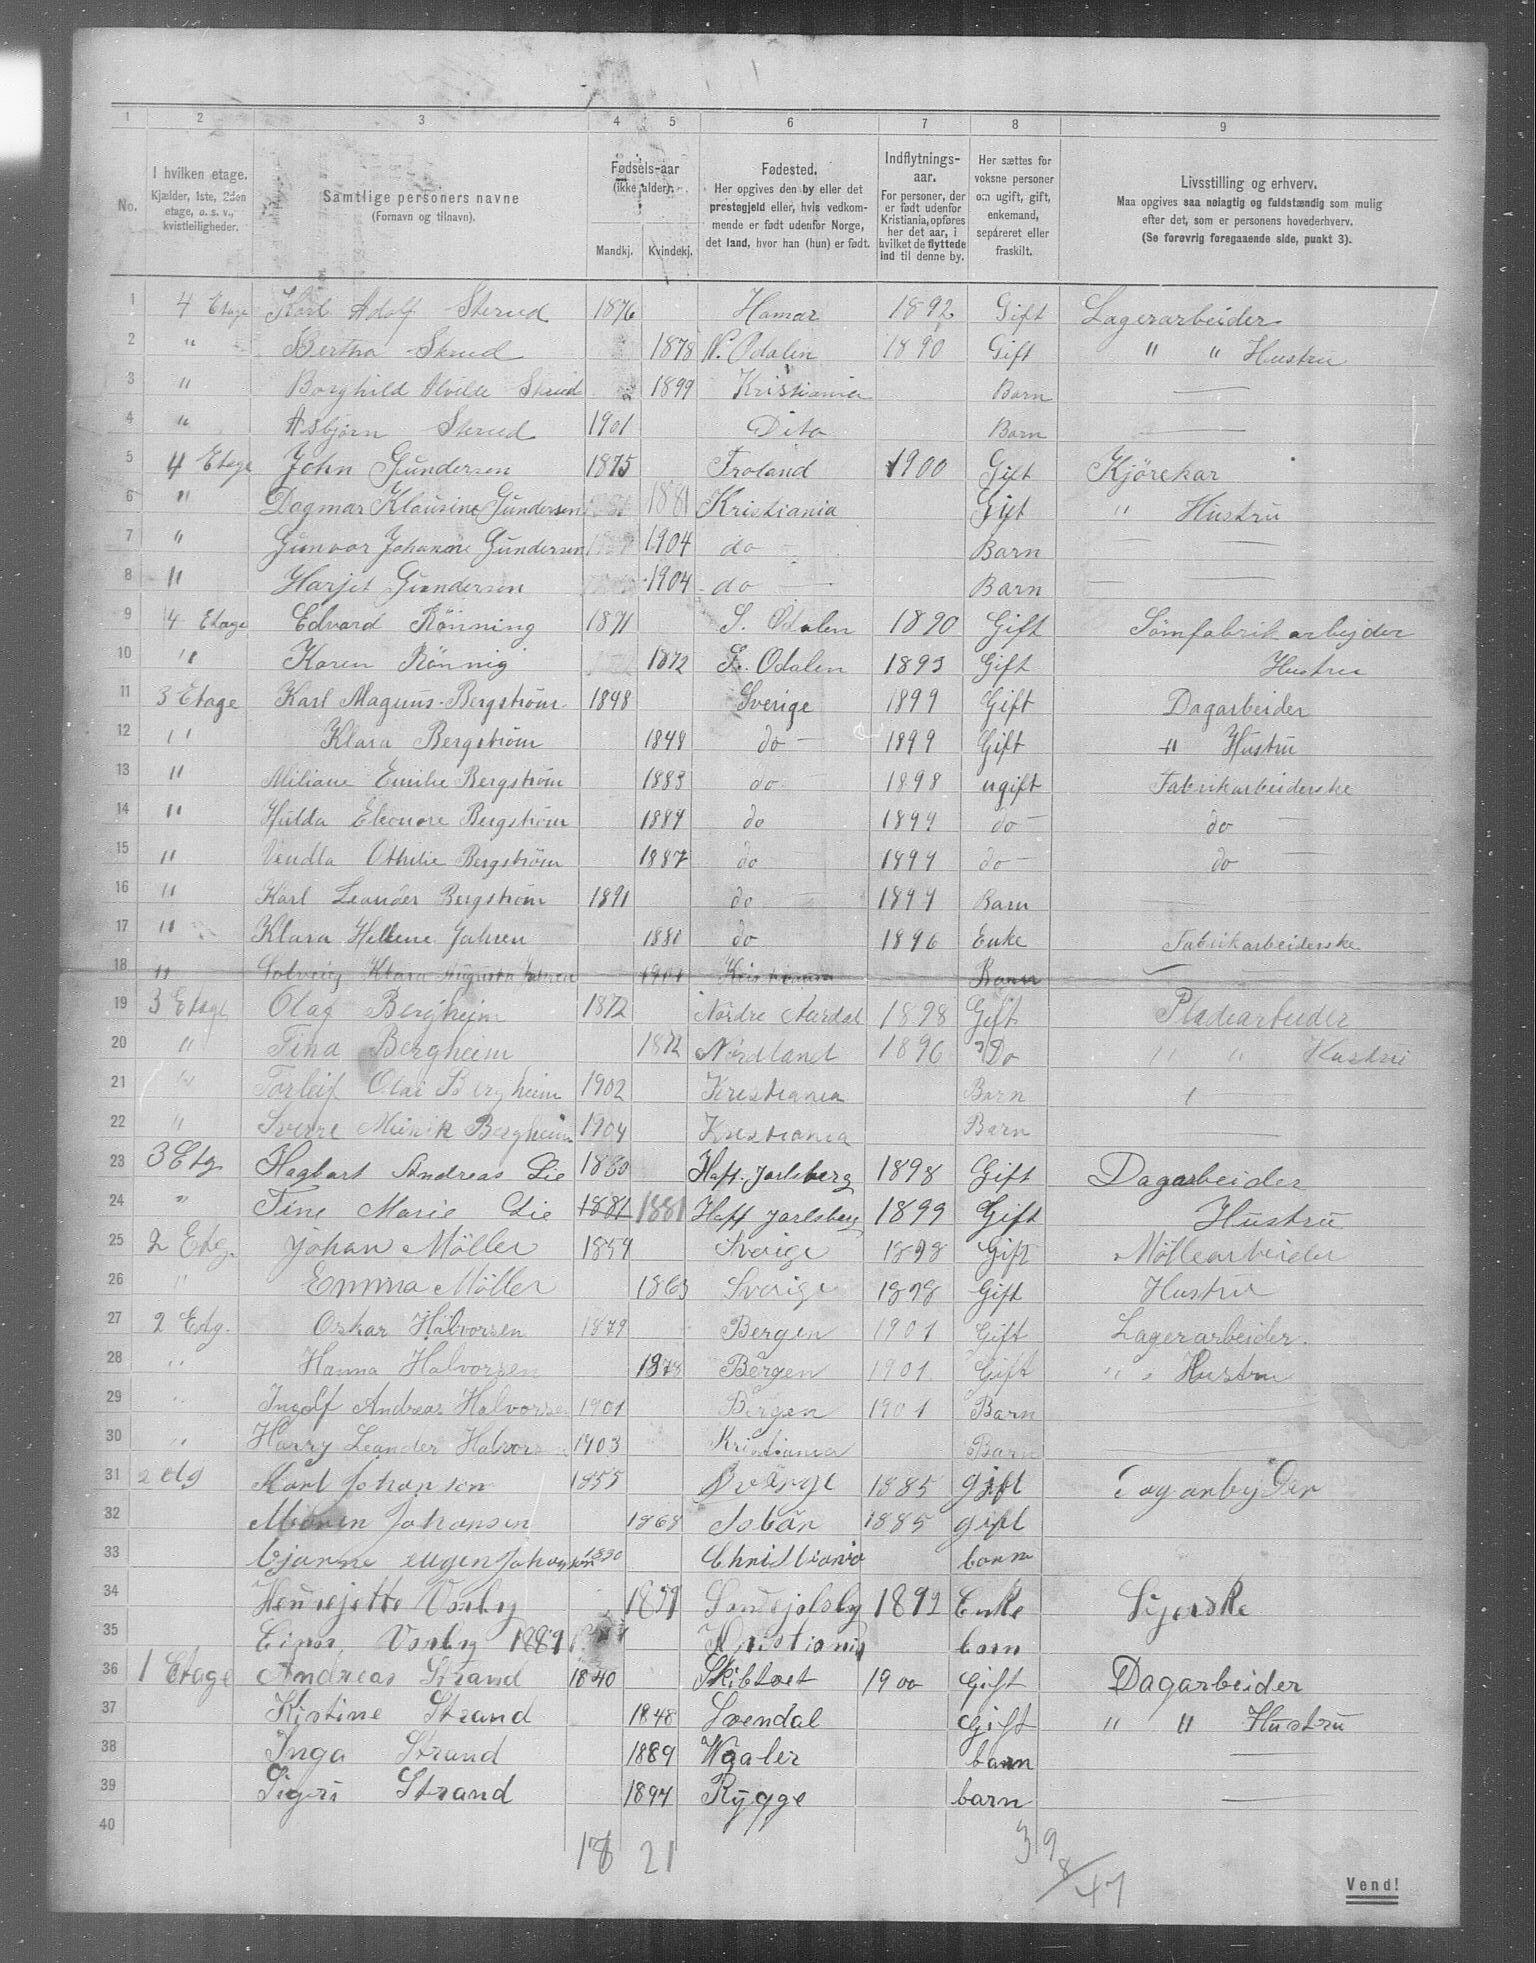 1 2 3 4 5 6 7 8 9
No.
I hvilken etage.
Kjælder, 1ste, 2den
etage, o. s. v.,
kvistleiligheder.
Samtlige personers navne
(Fornavn og tilnavn).
Fødsels-aar
(ikke alder).
Mandkj. Kvindekj.
Fødested.
Her opgives den by eller det
prestegjeld eller, hvis vedkom-
mende er født udenfor Norge,
det land, hvor han (hun) er født.
Indflytnings-
aar.
For personer, der
er født udenfor
Kristiania, opføres
her det aar, i
hvilket de flyttede
ind til denne by.
Her sættes for
voksne personer
om ugift, gift,
enkemand,
separeret eller
fraskilt.
Livsstilling og erhverv.
Maa opgives saa nøiagtig og fuldstændig som mulig
efter det, som er personens hovederhverv.
(Se forøvrig foregaaende side, punkt 3).
1 4 Etage Karl Adolf Skrud 1876 Hamar 1892 Gift Lagerarbeider
2 " Bertha Skrud 1878 N. Odalen 1890 Gift " " Hustru
3 " Borghild Alvilde Skrud 1899 Kristiania Barn —
4 " Asbjørn Skrud 1901 Dito Barn —
5 4 Etage John Gundersen 1875 Froland 1900 Gift Kjörekar
6 " Dagmar Klausine Gundersen 1881 Kristiania Gift " Hustru
7 " Gunvor Johanne Gundersen 1904 do — Barn — —
8 " Harjet Gundersen 1904 do — Barn —
9 4 Etage Edvard Rönning 1871 S. Odalen 1890 Gift Sömfabrik arbejder
10 " Karen Rönnig 1872 S. Odalen 1893 Gift Hustru
11 3 Etage Karl Magnus Bergström 1848 Sverige 1899 Gift Dagarbeider
12 " Klara Bergström 1848 do — 1899 Gift " Hustru
13 " Miliane Emilie Bergström 1883 do 1898 ugift Fabrikarbeiderske
14 " Hulda Eleonore Bergström 1884 do 1899 do — do —
15 " Vendla Othilie Bergström 1887 do 1899 do — do —
16 " Karl Leander Bergström 1891 do 1899 Barn
17 " Klara Hellene Jahren 1880 do 1896 Enke Fabrikarbeiderske
18 " Solveig Klara Augusta Jahren 1901 Kristiania Barn —
19 3 Etage Olaf Bergheim 1872 Nordre Aurdal 1898 Gift Pladearbeider
20 " Tina Bergheim 1872 Nordland 1896 Do " " Hustru
21 " Torleif Olai Bergheim 1902 Kristiania Barn —
22 " Sverre Bergheim 1904 Kristiania Barn —
23 3 Etg Hagbart Andreas Lie 1880 Haf. Jarlsberg 1898 Gift Dagarbeider
24 " Tine Marie Lie 1881 1881 Haff Jarlsberg 1899 Gift Hustru
25 2 Etg. Johan Möller 1859 Sverige 1898 Gift Möllearbeider
26 " Emma Möller 1863 Sverige 1898 Gift Hustru
27 2 Etg. Oskar Halvorsen 1879 Bergen 1901 Gift Lagerarbeider.
28 " Hanna Halvorsen 1878 Bergen 1901 Gift " " Hustru
29 " Ingolf Andreas Halvorsen 1901 Bergen 1901 Barn
30 " Harry Leander Halvorsen 1903 Kristiania Barn
31 2 etg Karl Johansen 1855 Sværge 1885 gift Dagarbejder
32 Maren Johansen 1868 1885 gift
33 Bjarne Eugen Johansen 1890 Christiania barn
34 Henriette Vonby 1859 1892 Enke Syerske
35 Einar Vonby 1889 Kristiania barn
36 1 Etage Andreas Strand 1840 Skibtvet 1900 Gift Dagarbeider
37 Kistine Strand 1848 Svendal Gift " " Hustru
38 Inga Strand 1889 Waaler barn —
39 Sigri Strand 1894 Rygge barn —
40
18 21 39
8
47
Vend!